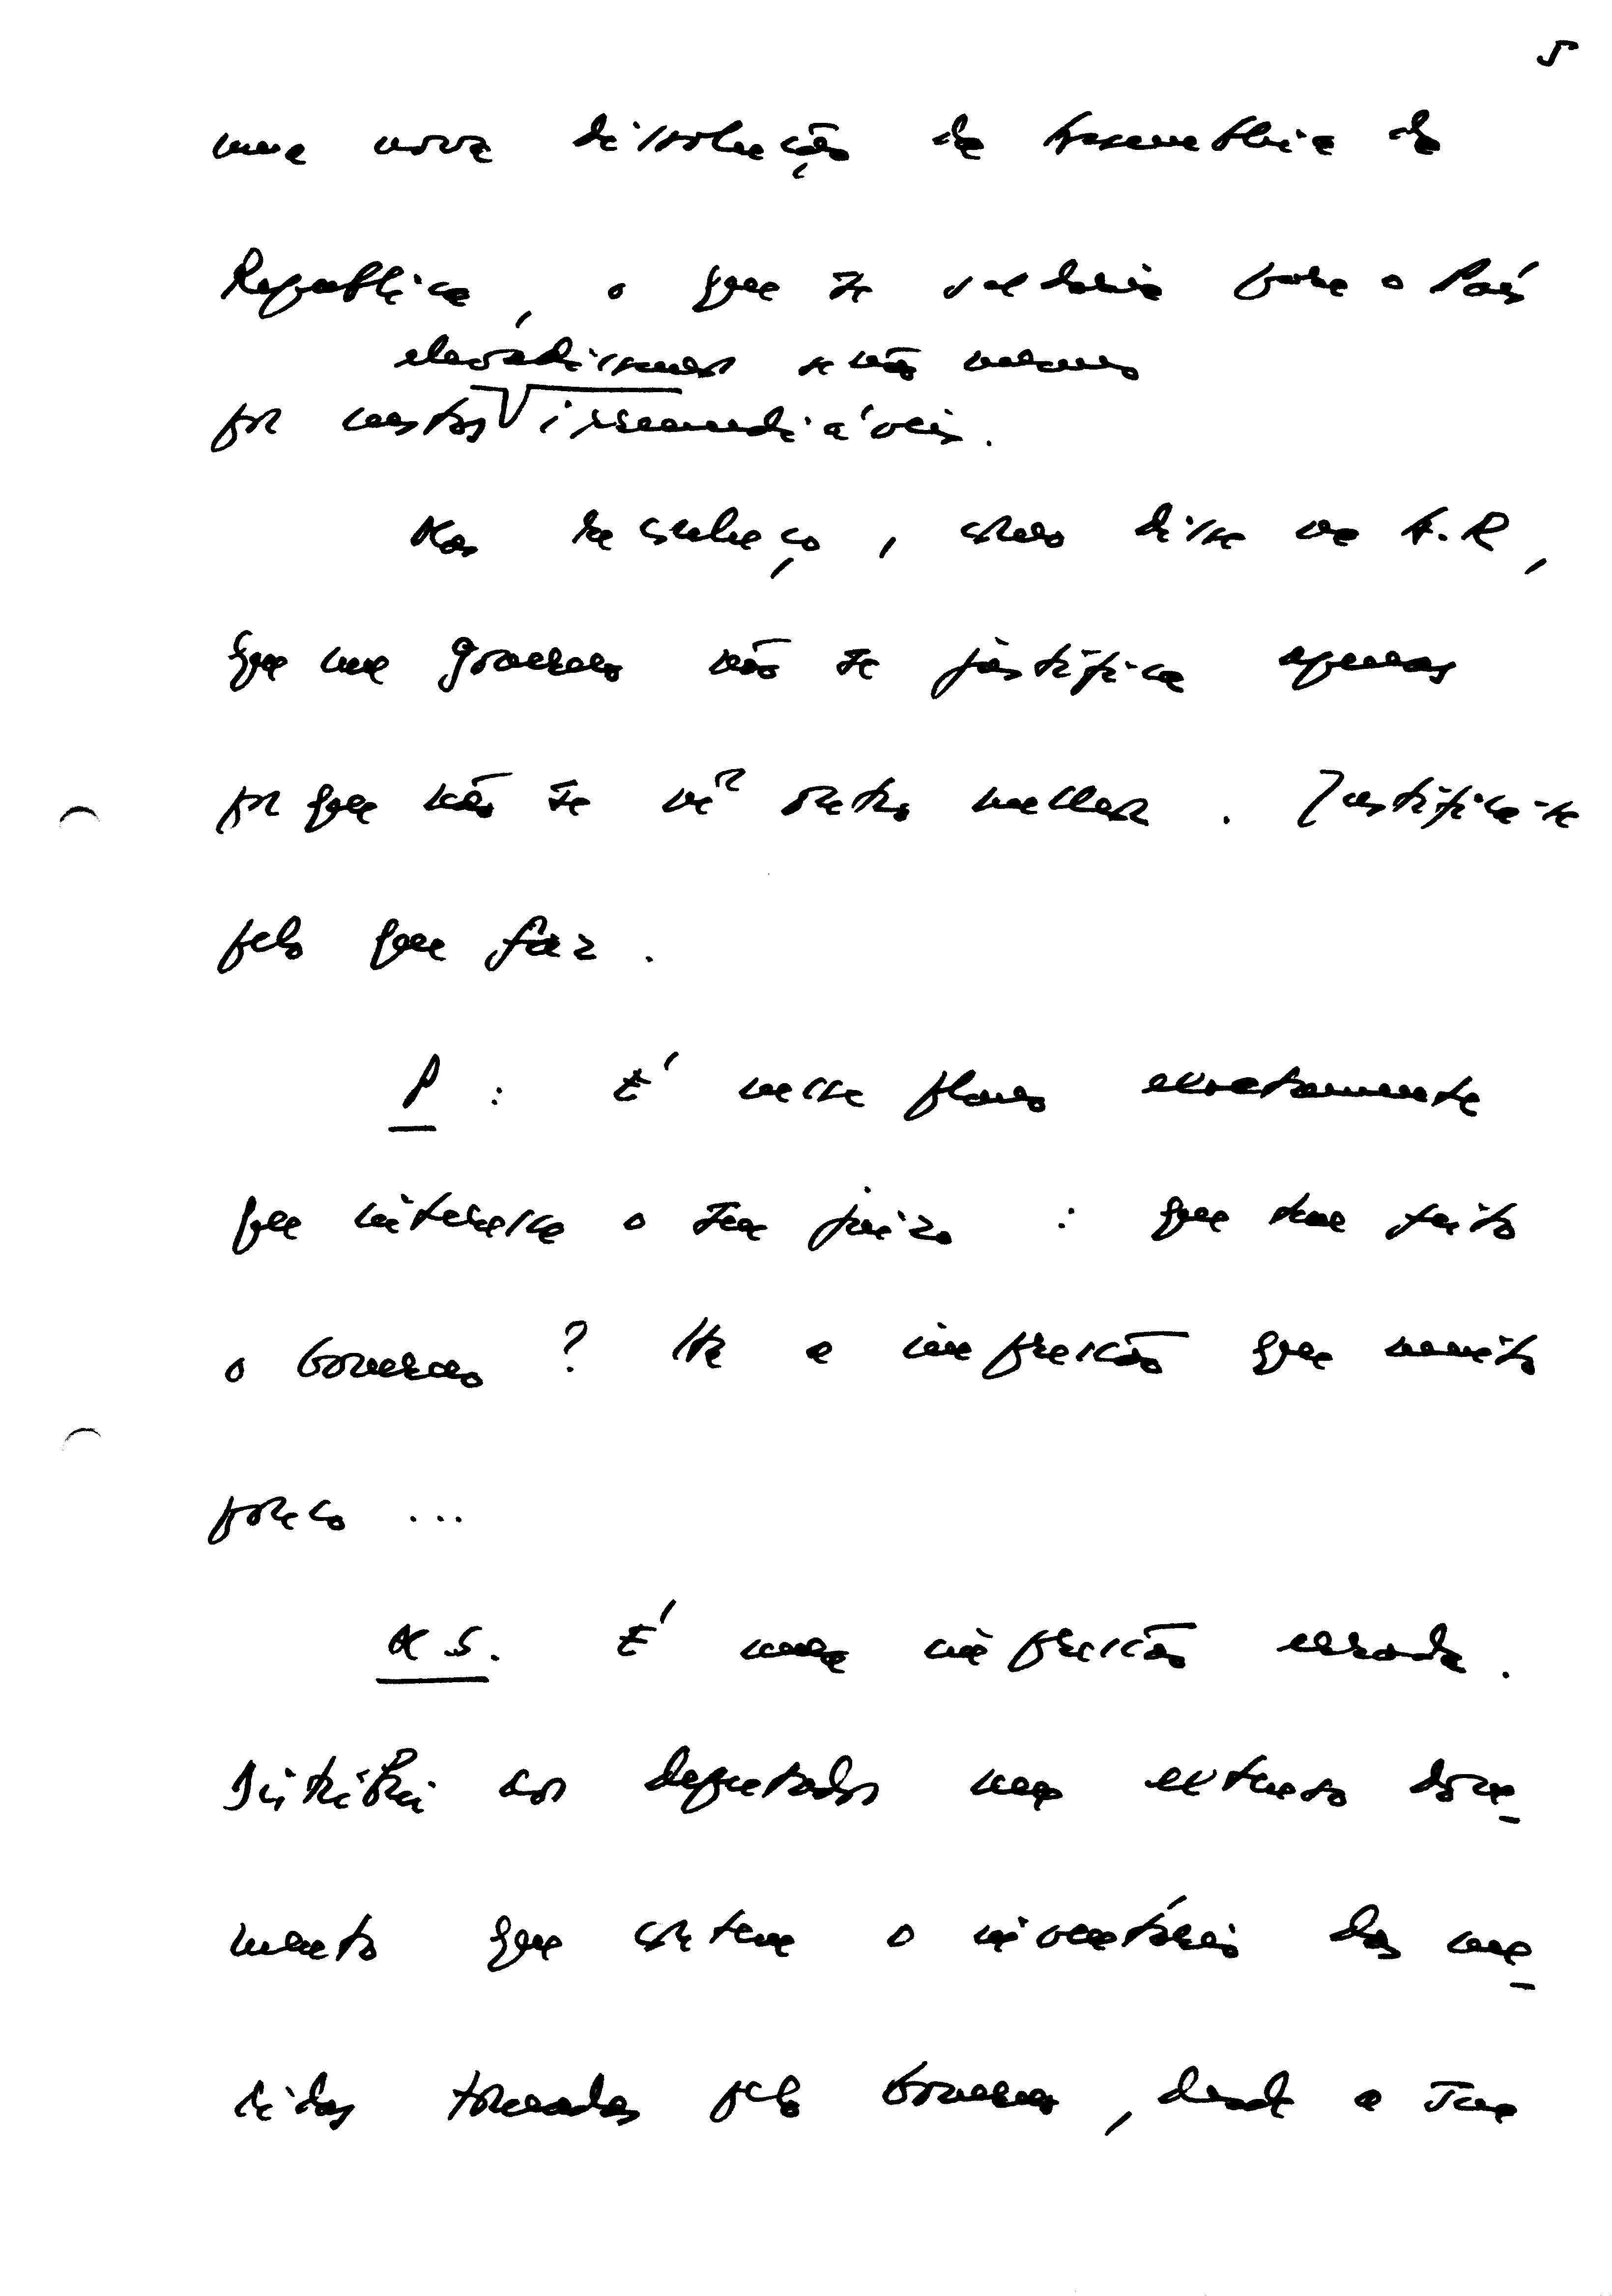 5
uma nova dissolução da Assembleia da
República, o que se saldaria para o País
elevadíssimos se não mesmo
por custos irremediáveis.
Mas reconheço, como disse na A.R,
que um governo não se justifica apenas
por que não se vê outro melhor. Justifica-se
pelo que faz.
P : É nesse plano exactamente
que interessa o seu juízo : que tem feito
o Governo ? Há a impressão que muito
pouco ...
M S. É uma impressão errada.
Distribui aos deputados um extenso docu-
mento que contem o inventário das me-
didas tomadas pelo Governo, desde a sua